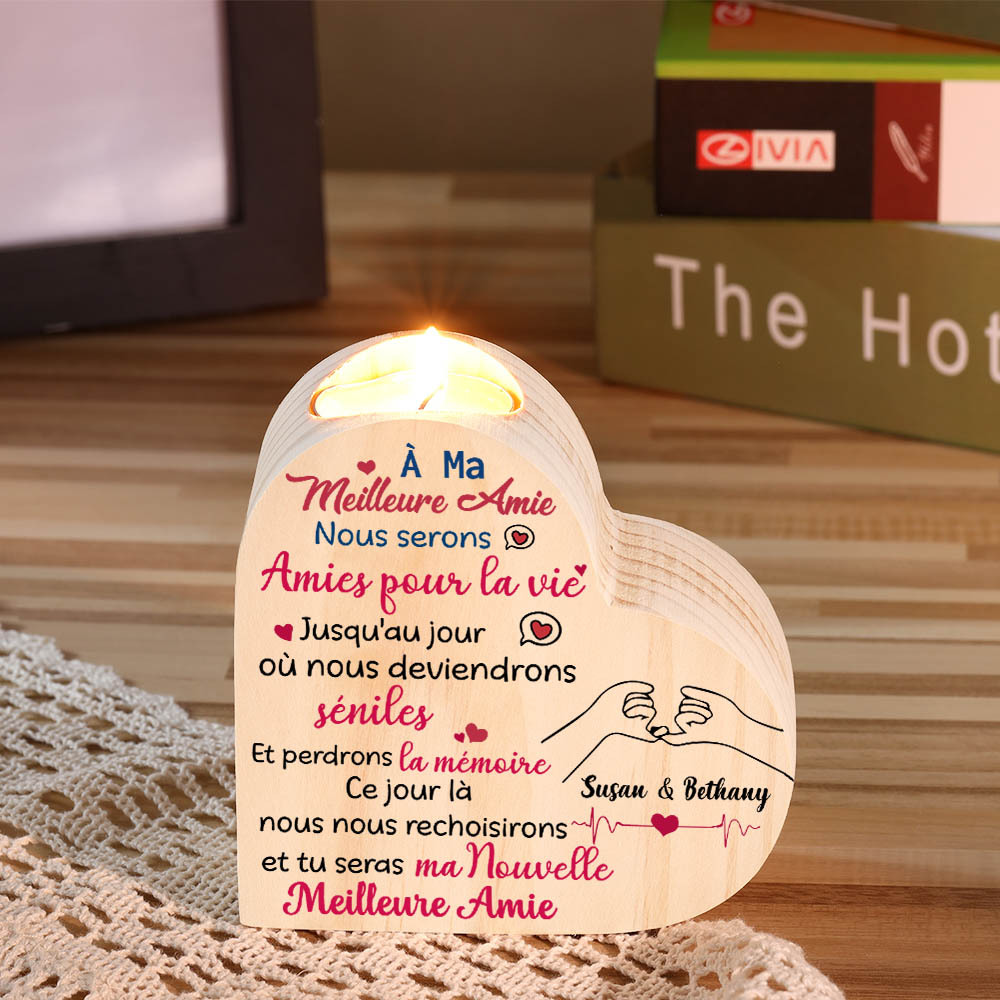 IVIA
The Hot
À Ma
Meilleure Amie
Nous serons
Amies pour la vie
Jusqu'au jour
où nous deviendrons
séniles
Et perdrons la mémoire
Ce jour là
nous nous rechoisirons
et tu seras ma Nouvelle
Meilleure Amie
Susan & Bethany